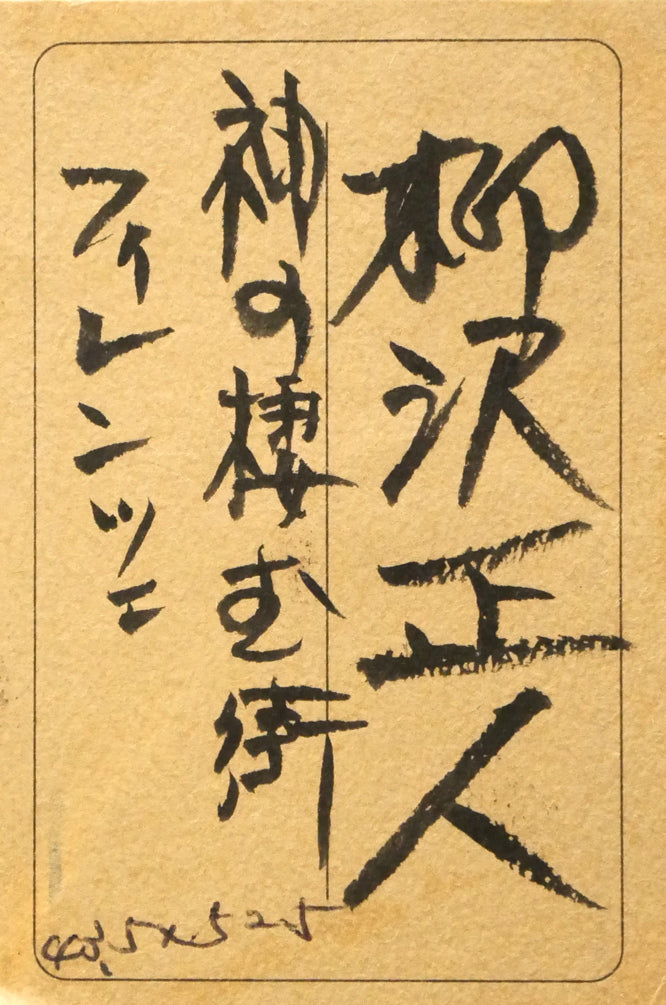 柳沢正人
神の棲む街
フィレンツェ
40.5×52.5